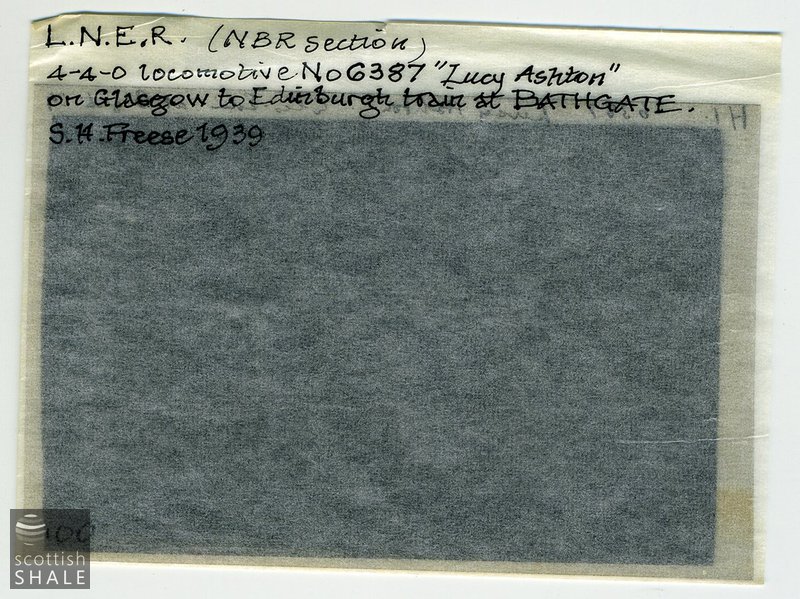 L.N.E.R. (NBR section)
4-4-0 locomotive No 6387 "Lucy Ashton"
on Glasgow to Edinburgh train at BATHGATE.
S.H. Freese 1939
scottish
SHALE